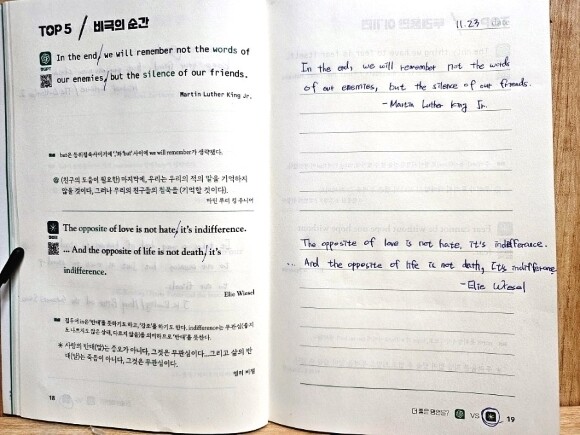 TOP 5 / 비극의 순간
In the end, we will remember not the words of
our enemies, but the silence of our friends.
Martin Luther King Jr.
(친구의 도움이 필요한) 마지막에, 우리는 우리의 적의 말을 기억하지
않을 것이다, 그러나 우리의 친구들의 침묵을 (기억할 것이다).
마틴 루터 킹 주니어
The opposite of love is not hate, it's indifference.
... And the opposite of life is not death, it's
indifference.
Elie Wiesel
사랑의 반대(말)는 증오가 아니다, 그것은 무관심이다...그리고 삶의 반
대(말)는 죽음이 아니다, 그것은 무관심이다.
엘리 위젤
18
11.23
In the end, we will remember not the words
of our enemies, but the silence of our friends.
- Martin Luther King Jr.
The opposite of love is not hate, it's indifference.
... And the opposite of life is not death, It's indifference
- Elie Wiesel
더 좋은 명언은?
VS
19